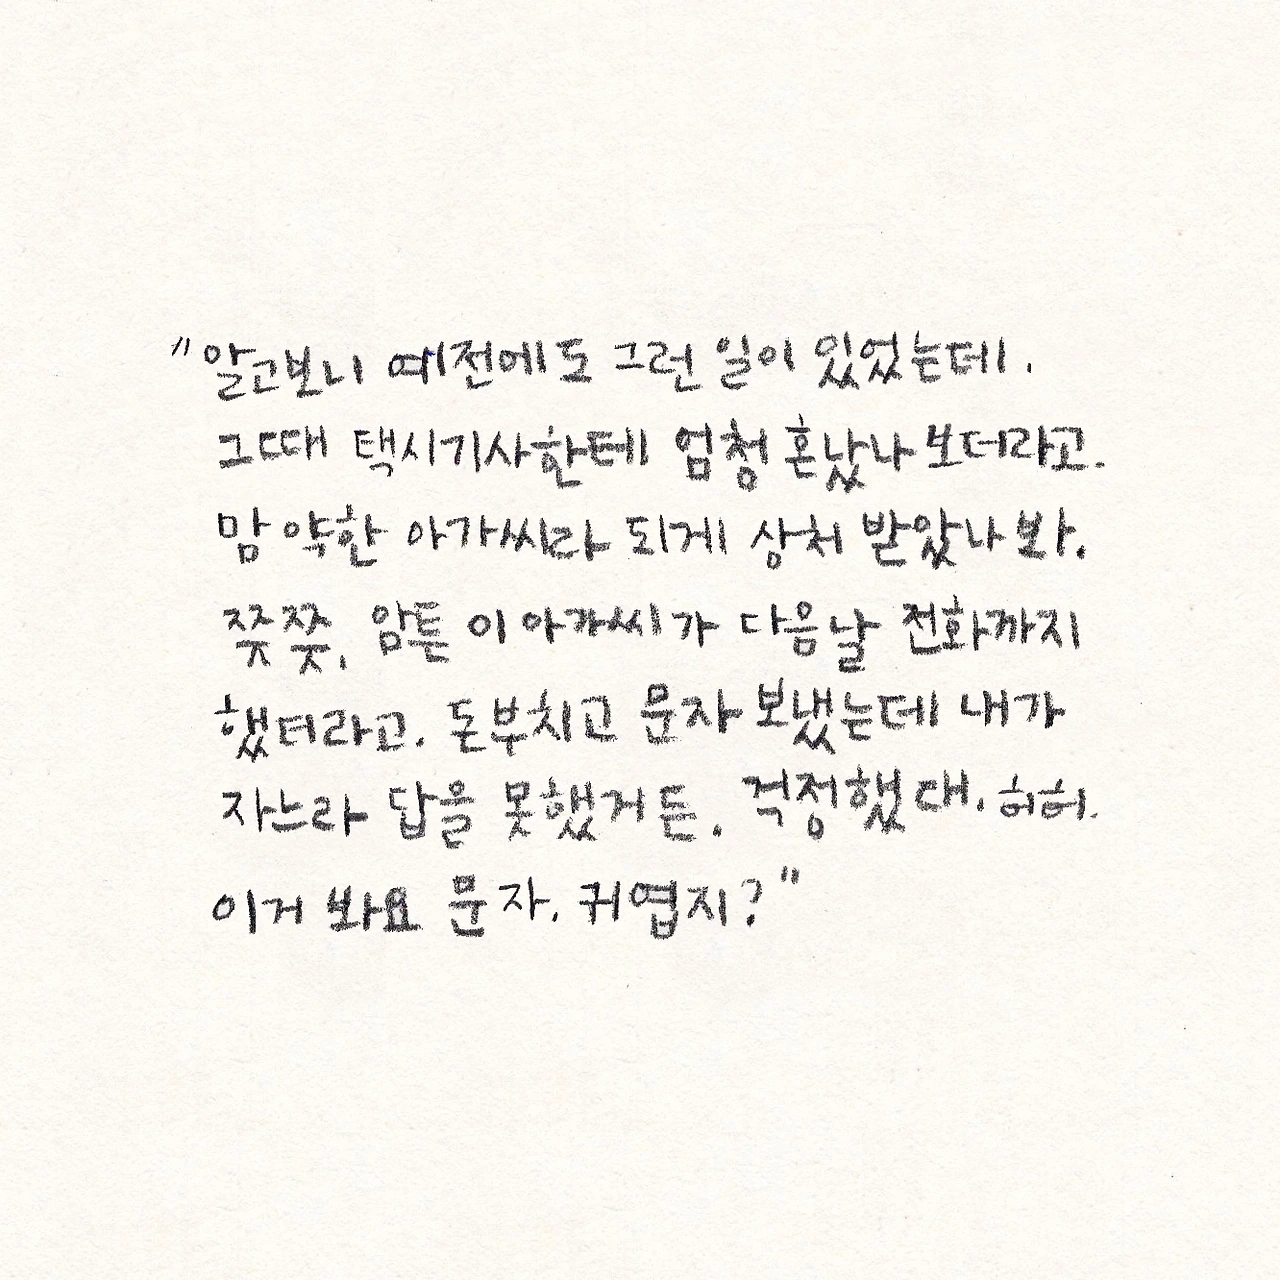 "알고보니 예전에도 그런 일이 있었는데.
그때 택시기사한테 엄청 혼났나 보더라고.
맘 약한 아가씨라 되게 상처 받았나 봐.
쯧쯧, 암튼 이 아가씨가 다음날 전화까지
했더라고. 돈부치고 문자 보냈는데 내가
자느라 답을 못했거든. 걱정했대. 허허.
이거 봐요 문자. 귀엽지?"